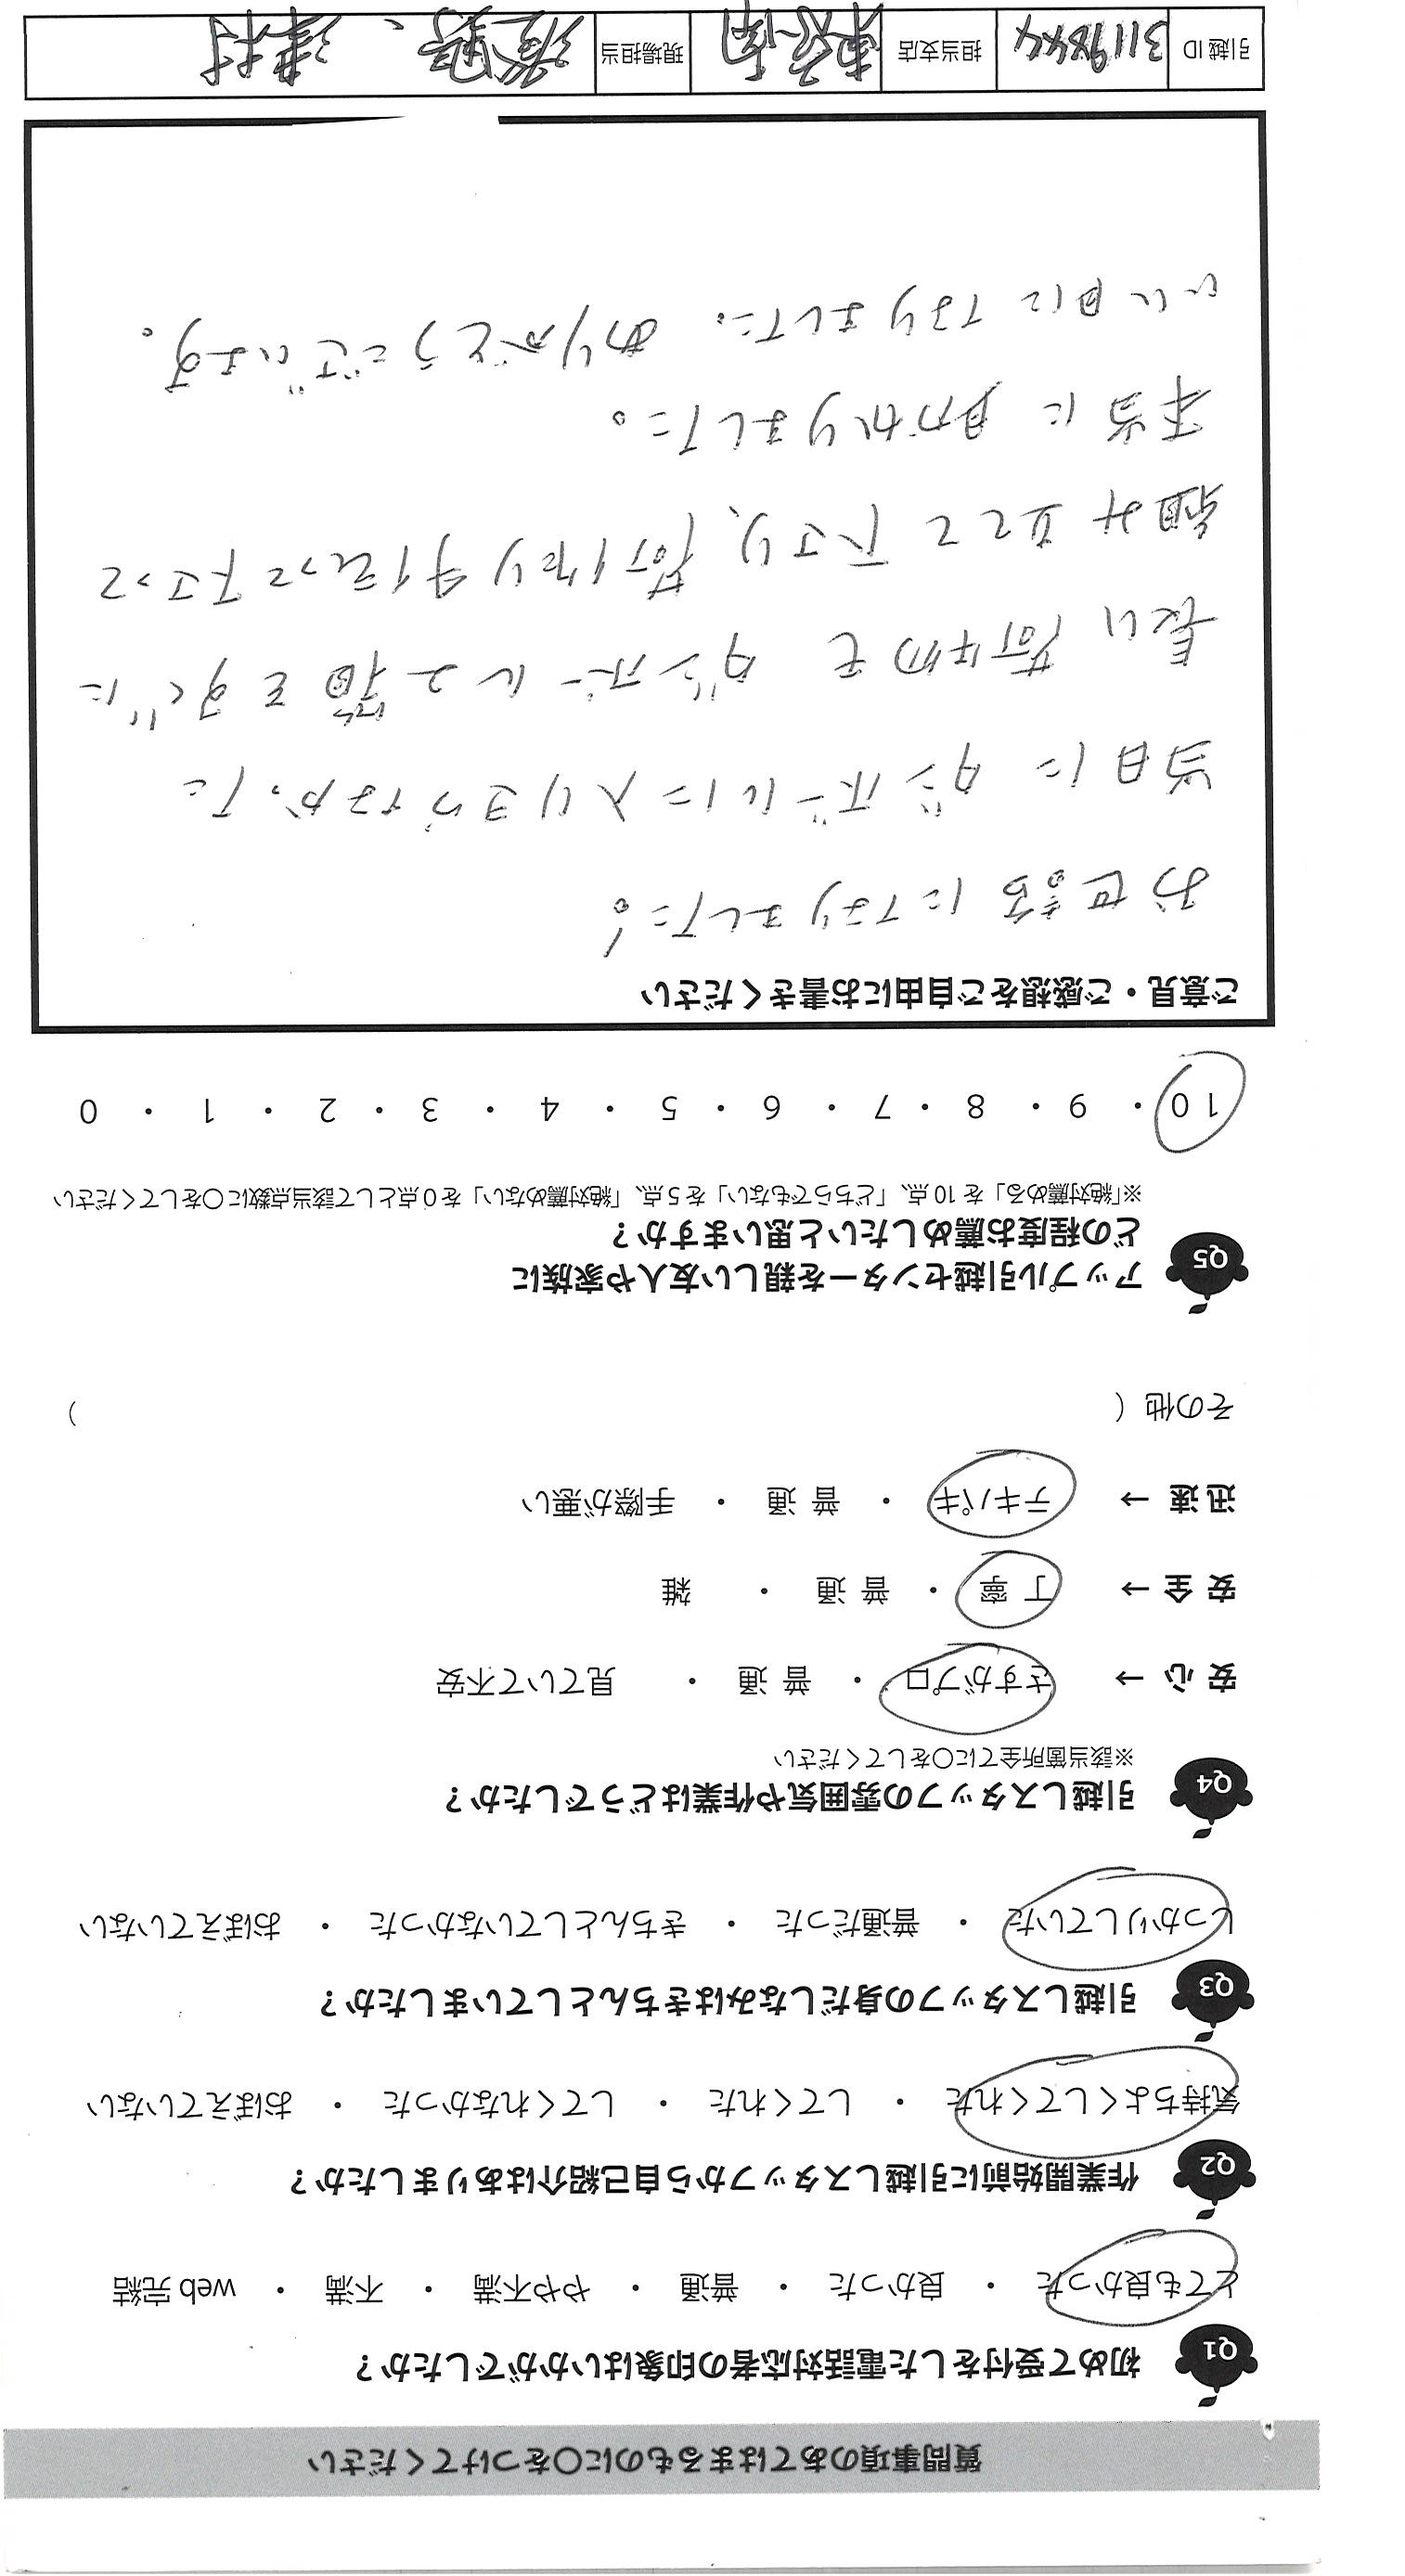 質問事項のあてはまるものに○をつけてください
Q1 初めて受付をした電話対応者の印象はいかがでしたか？
とても良かった ・ 良かった ・ 普通 ・ やや不満 ・ 不満 ・ web 完結
Q2 作業開始前に引越しスタッフから自己紹介はありましたか？
気持ちよくしてくれた ・ してくれた ・ してくれなかった ・ おぼえていない
Q3 引越しスタッフの身だしなみはきちんとしていましたか？
しっかりしていた ・ 普通だった ・ きちんとしていなかった ・ おぼえていない
Q4 引越しスタッフの雰囲気や作業はどうでしたか？
※該当箇所全てに○をしてください
安 心 → さすがプロ ・ 普 通 ・ 見ていて不安
安 全 → 丁 寧 ・ 普 通 ・ 雑
迅 速 → テキパキ ・ 普 通 ・ 手際が悪い
その他（ ）
Q5 アップル引越センターを親しい友人や家族に
どの程度お薦めしたいと思いますか？
※「絶対薦める」を 10 点、「どちらでもない」を 5 点、「絶対薦めない」を 0 点として該当点数に○をしてください
10 ・ 9 ・ 8 ・ 7 ・ 6 ・ 5 ・ 4 ・ 3 ・ 2 ・ 1 ・ 0
ご意見・ご感想をご自由にお書きください
お世話になりました！
当日に ダンボールに入りきらなかった
長い荷物を ダンボール2箱をすぐに
組み立てて下さり、荷作り手伝って下さって
本当に助かりました。
いい日になりました。ありがとうございます。
引越 ID 3119844 担当支店 東京南 現場担当 、津村